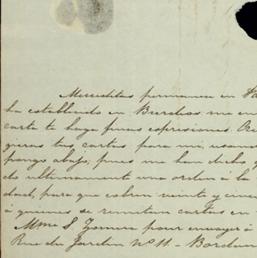 Merceditas permanece en
ha establecido en Burdeos me en
carta te haga finas espresiones
tus cartas para mi usando
pongo abajo, pues me han dicho q
do ultimamente una orden á la
dad, para que cobren veinte y cinco
á quienes se remitan cartas en
Mme S. pour envoyer à
Rue du Jardin Nº 11 - Bordeau